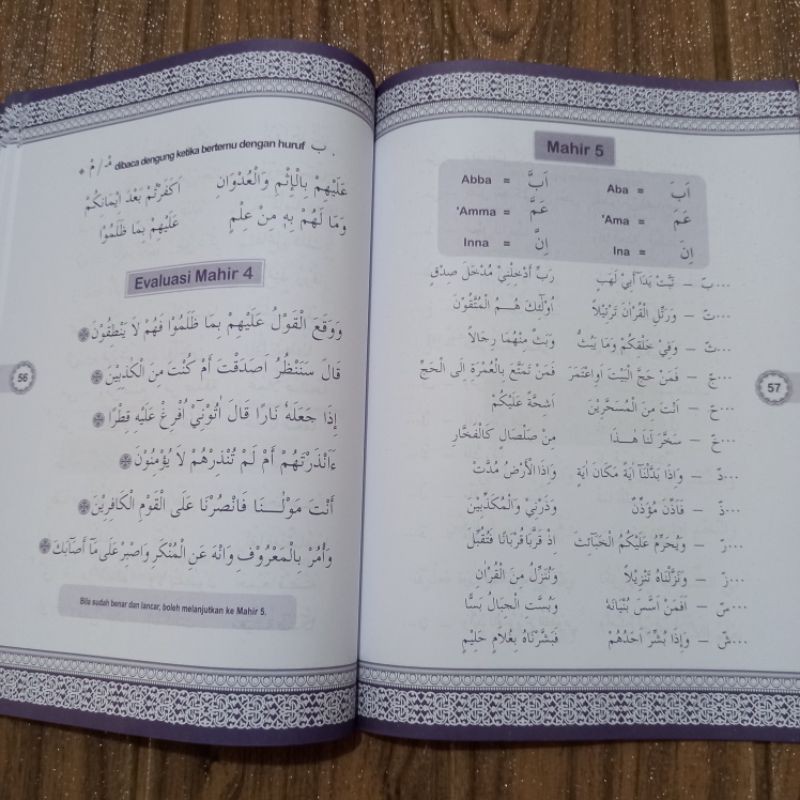 مْ / ـمْ dibaca dengung ketika bertemu dengan huruf ب .
عَلَيْهِمْ بِالْإِثْمِ وَالْعُدْوَانِ اَكَفَرْتُمْ بَعْدَ اِيْمَانِكُمْ
وَمَا لَهُمْ بِهٖ مِنْ عِلْمٍ عَلَيْهِمْ بِمَا ظَلَمُوْا
Evaluasi Mahir 4
وَوَقَعَ الْقَوْلُ عَلَيْهِمْ بِمَا ظَلَمُوْا فَهُمْ لَا يَنْطِقُوْنَ
قَالَ سَنَنْظُرُ اَصَدَقْتَ أَمْ كُنْتَ مِنَ الْكَاذِبِيْنَ
إِذَا جَعَلَهٗ نَارًا قَالَ اٰتُوْنِيْٓ اُفْرِغْ عَلَيْهِ قِطْرًا
ءَاَنْذَرْتَهُمْ أَمْ لَمْ تُنْذِرْهُمْ لَا يُؤْمِنُوْنَ
أَنْتَ مَوْلٰـنَا فَانْصُرْنَا عَلَى الْقَوْمِ الْكَافِرِيْنَ
وَأْمُرْ بِالْمَعْرُوْفِ وَانْهَ عَنِ الْمُنْكَرِ وَاصْبِرْ عَلٰى مَآ أَصَابَكَ
Bila sudah benar dan lancar, boleh melanjutkan ke Mahir 5.
56
Mahir 5
Abba = اَبَّ Aba = اَبَ
'Amma = عَمَّ 'Ama = عَمَ
Inna = اِنَّ Ina = اِنَ
...بّ – تَبَّتْ يَدَآ اَبِيْ لَهَبٍ رَبِّ اَدْخِلْنِيْ مُدْخَلَ صِدْقٍ
...تّ – وَرَتِّلِ الْقُرْاٰنَ تَرْتِيْلًا اُولٰٓئِكَ هُـمُ الْمُتَّقُوْنَ
...ثّ – وَفِيْ خَلْقِكُمْ وَمَا يَبُثُّ وَبَثَّ مِنْهُمَا رِجَالًا
...جّ – فَمَنْ حَجَّ الْبَيْتَ اَوِاعْتَمَرَ فَمَنْ تَمَتَّعَ بِالْعُمْرَةِ اِلَى الْحَجِّ
...حّ – اَنْتَ مِنَ الْمُسَحَّرِيْنَ اَشِحَّةً عَلَيْكُمْ
...خّ – سَخَّرَ لَنَا هٰـذَا مِنْ صَلْصَالٍ كَالْفَخَّارِ
...دّ – وَاِذَا بَدَّلْنَآ اٰيَةً مَكَانَ اٰيَةٍ وَاِذَا الْأَرْضُ مُدَّتْ
...ذّ – فَاَذَّنَ مُؤَذِّنٌ وَذَرْنِيْ وَالْمُكَذِّبِيْنَ
...رّ – وَيُحَرِّمُ عَلَيْكُمُ الْخَبَآئِثَ اِذْ قَرَّبَا قُرْبَانًا فَتُقُبِّلَ
...زّ – وَنَزَّلْنَاهُ تَنْزِيْلًا وَنُنَزِّلُ مِنَ الْقُرْاٰنِ
...سّ – اَفَمَنْ اَسَّسَ بُنْيَانَهٗ وَبُسَّتِ الْجِبَالُ بَسًّا
...شّ – وَاِذَا بُشِّرَ اَحَدُهُمْ فَبَشَّرْنَاهُ بِغُلَامٍ حَلِيْمٍ
57